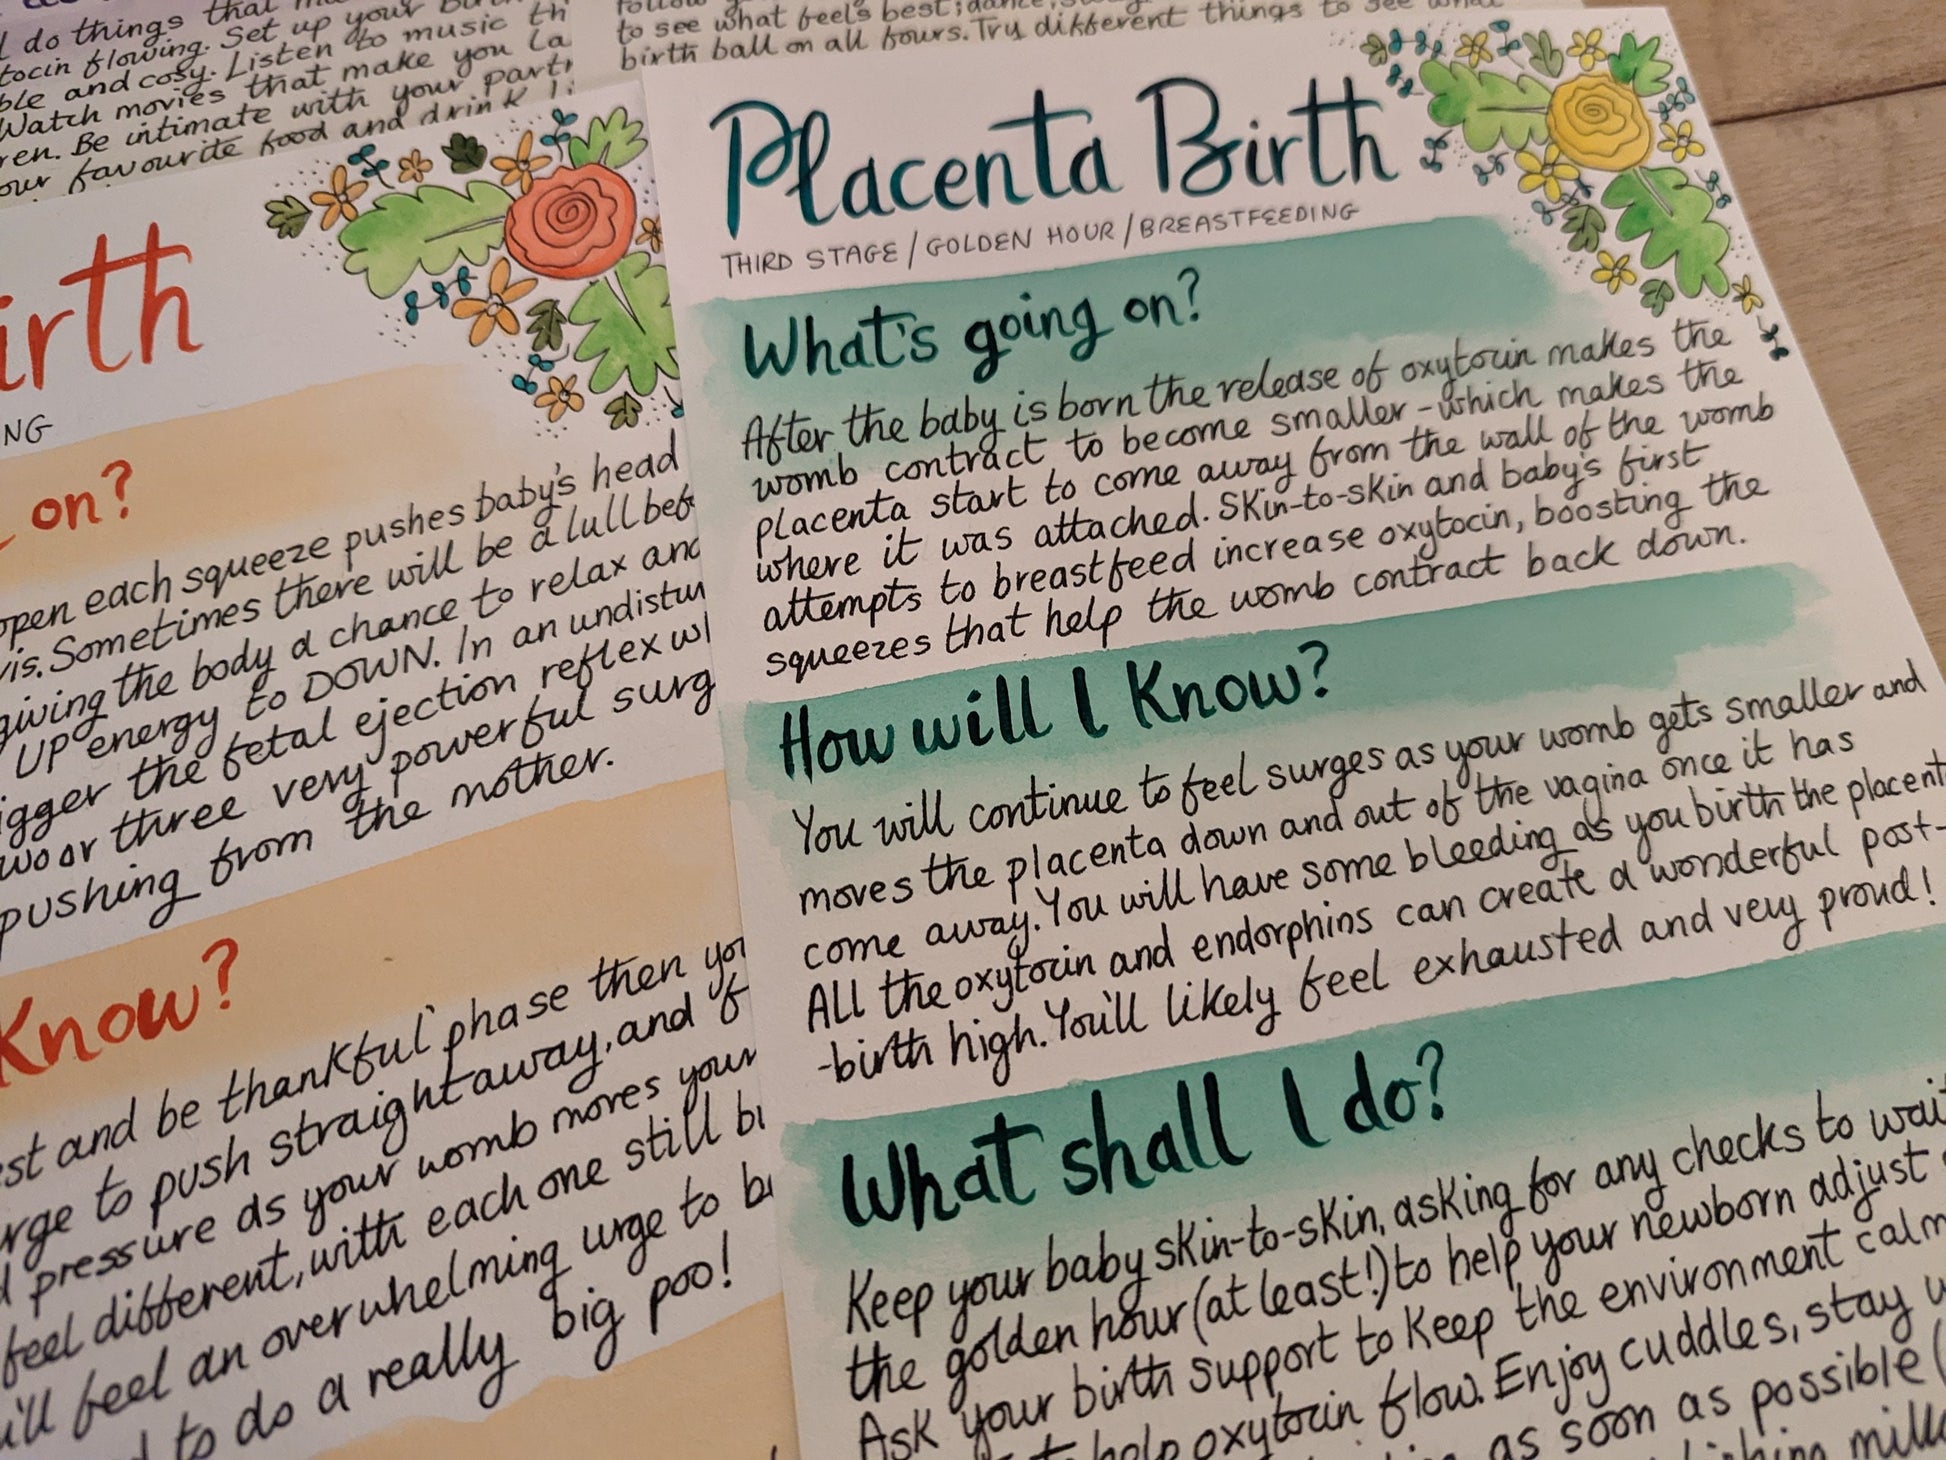 do things that
tocin flowing. Set up your
ble and cosy. Listen to music th
Watch movies that make you la
ren. Be intimate with your part
our favourite food and drink
to see what feels best; dance,
birth ball on all fours. Try different things to see what
irth
NG
on?
open each squeeze pushes baby's head
vis. Sometimes there will be a lull bef
giving the body a chance to relax and
UP energy to DOWN. In an undistur
igger the fetal ejection reflex wh
wo or three very powerful surg
pushing from the mother.
Know?
est and be thankful' phase then you
rge to push straight away, and f
d pressure as your womb moves your
feel different, with each one still br
ill feel an overwhelming urge to b
to do a really big poo!
Placenta Birth
THIRD STAGE / GOLDEN HOUR / BREASTFEEDING
What's going on?
After the baby is born the release of oxytocin makes the
womb contract to become smaller - which makes the
placenta start to come away from the wall of the womb
where it was attached. Skin-to-skin and baby's first
attempts to breastfeed increase oxytocin, boosting the
squeezes that help the womb contract back down.
How will I Know?
You will continue to feel surges as your womb gets smaller and
moves the placenta down and out of the vagina once it has
come away. You will have some bleeding as you birth the placent
All the oxytocin and endorphins can create a wonderful post-
-birth high. You'll likely feel exhausted and very proud!
What shall I do?
Keep your baby skin-to-skin, asking for any checks to wait
the golden hour (at least!) to help your newborn adjust
Ask your birth support to keep the environment calm
to help oxytocin flow. Enjoy cuddles, stay
as soon as possible (
milk